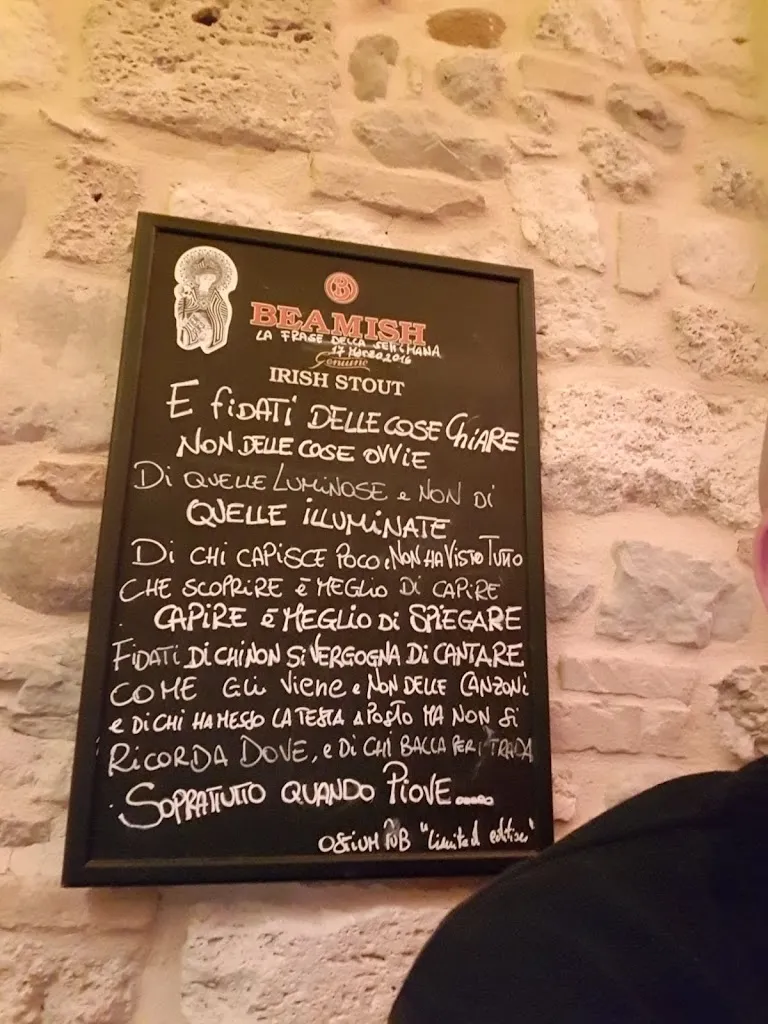 BEAMISH
LA FRASE DELLA SETTIMANA
17 MARZO 2016
Genuine
IRISH STOUT
E fiDATi DELLE COSE ChiARE
NON DELLE COSE OVVIE
Di QUELLE LUMiNOSE e NON Di
QUELLE iLLUMiNATE
Di CHi CAPISCE POCO, NON HA ViSTO TUTTO
CHE SCOPRiRE è MEGLiO Di CAPiRE
CAPiRE è MEGLiO Di SPiEGARE
FiDATi Di CHi NON Si VERGOGNA Di CANTARE
COME GLi ViENE e NON DELLE CANZONi
e Di CHi HA MESSO LA TESTA A POSTO MA NON Si
RiCORDA DOVE, e Di CHi BALLA PER STRADA
SOPRATTUTTO QUANDO PiOVE.....
PUB "Limited edition"